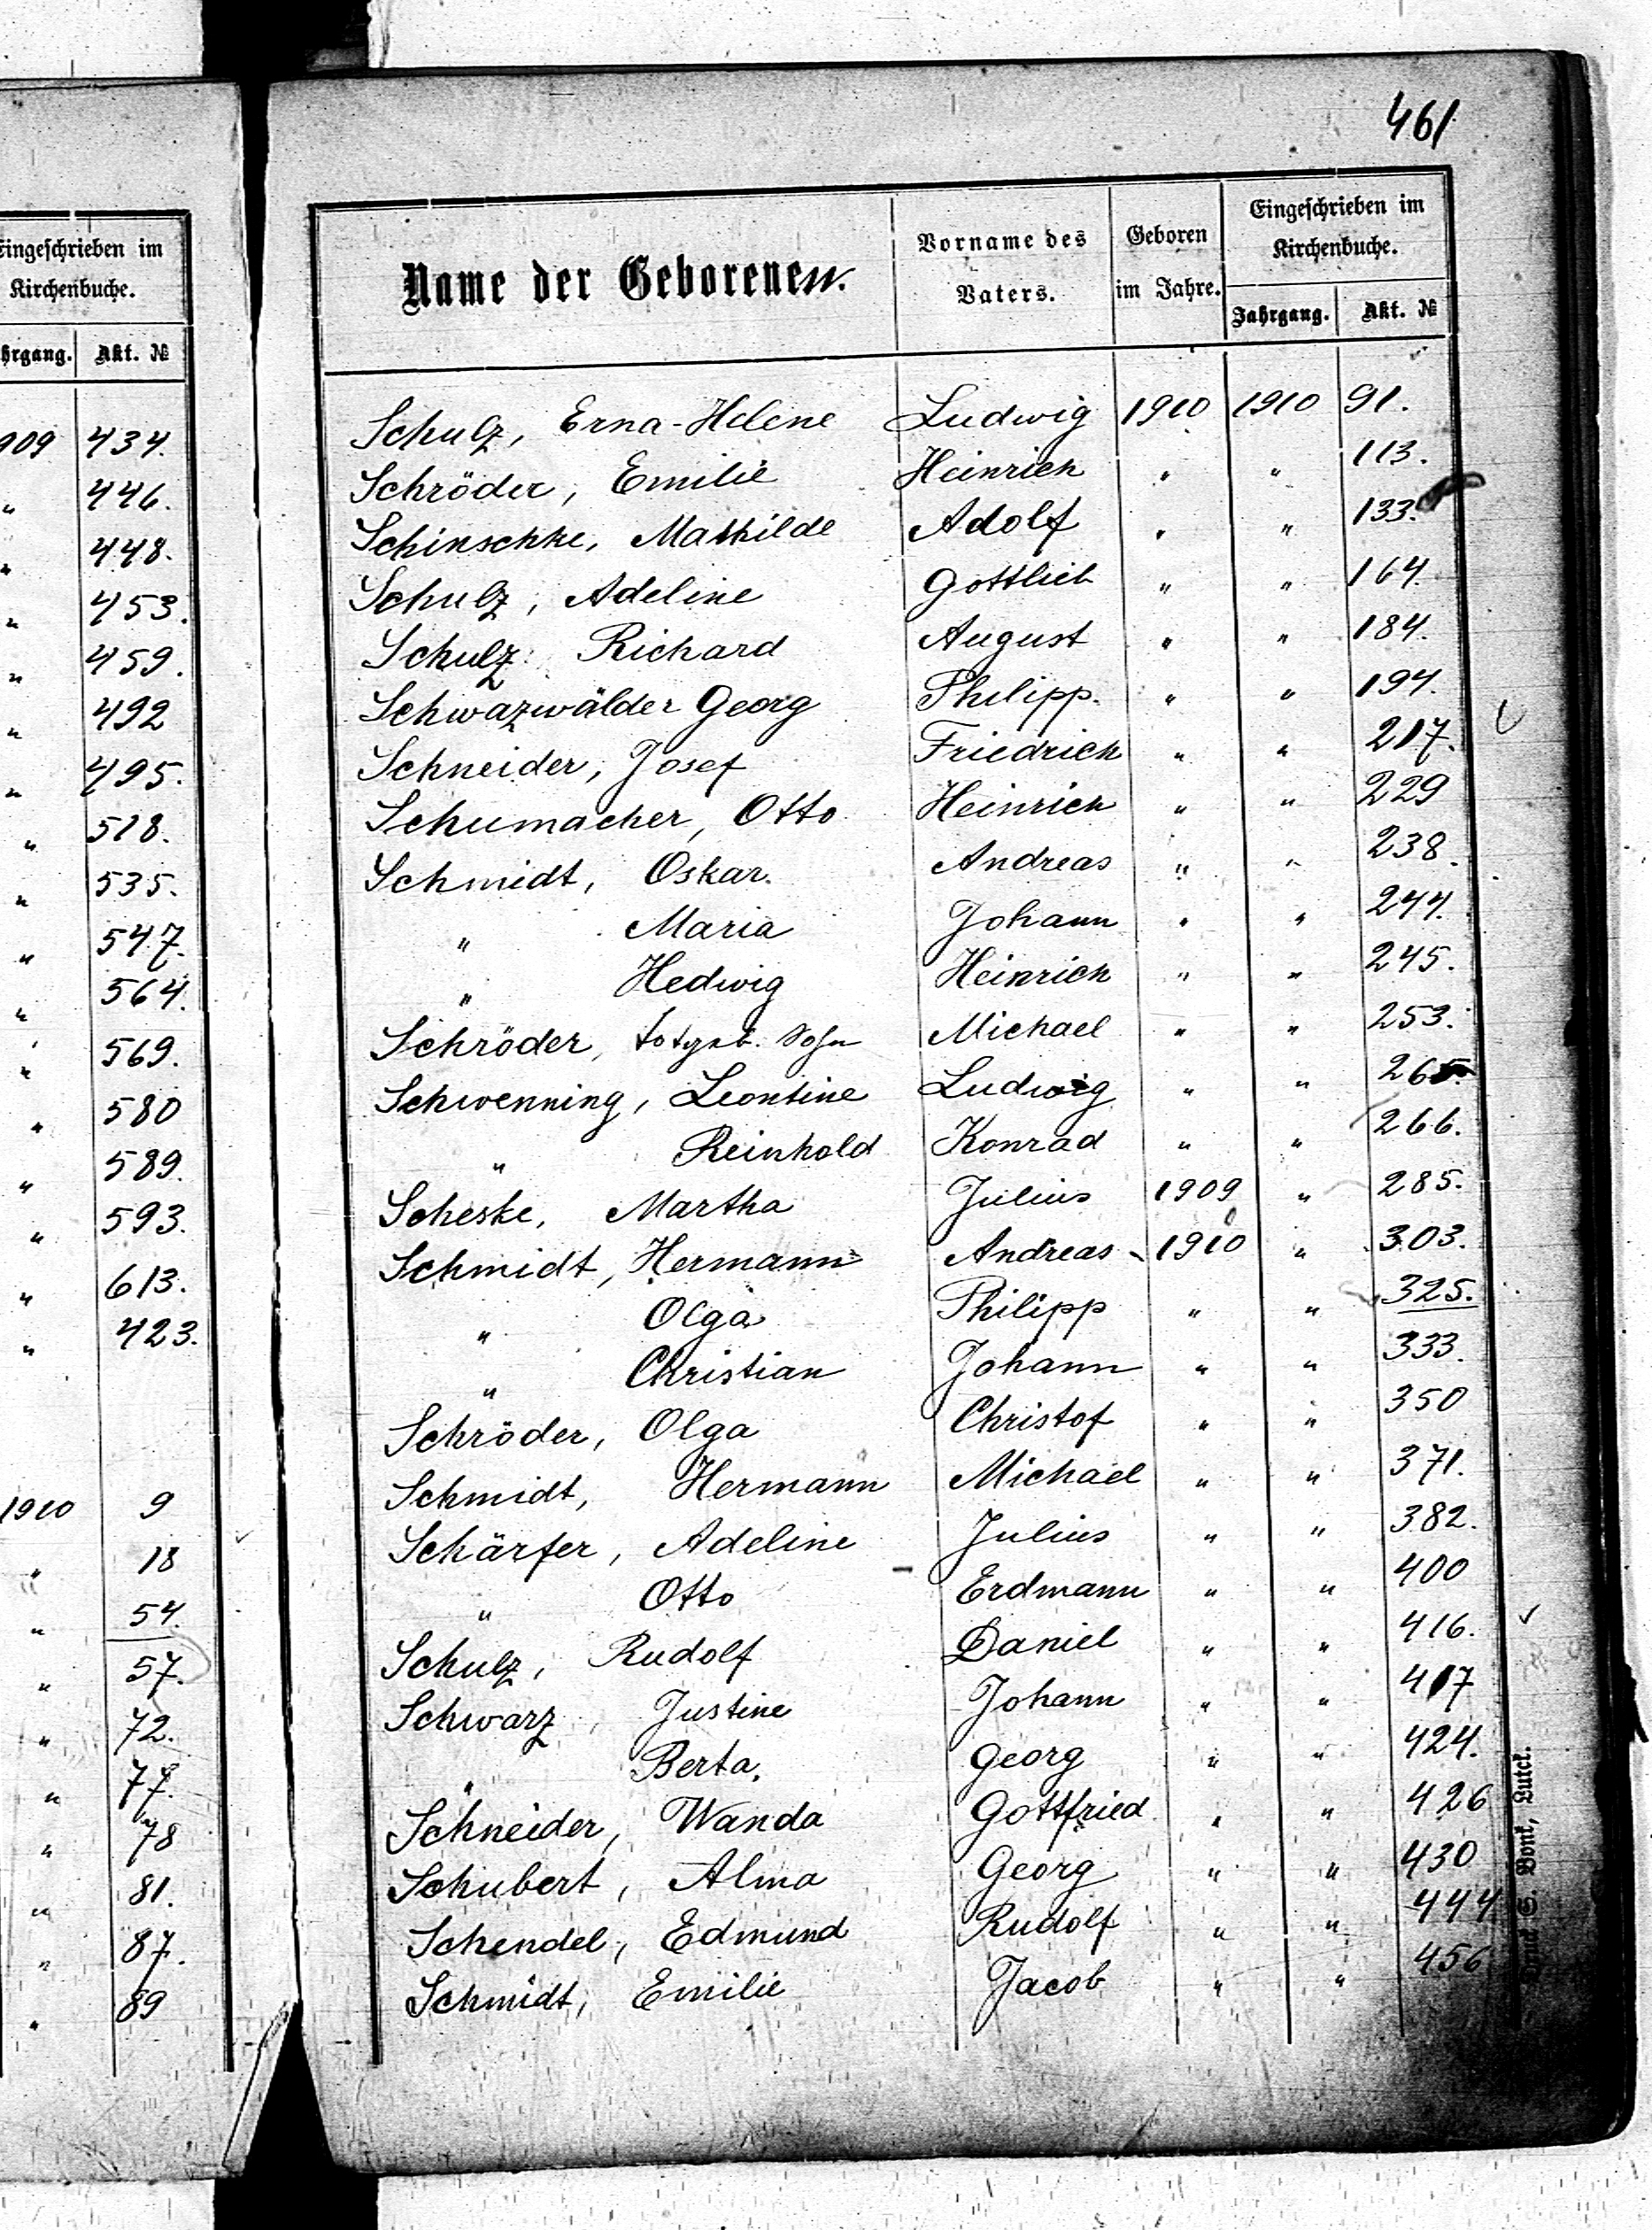 461
Eingeschrieben im
Kirchenbuche.
hrgang. Akt. №
909 434.
" 446.
" 448.
" 453.
" 459.
" 492
" 495.
" 518.
" 535.
" 547.
" 564.
" 569.
" 580
" 589.
" 593.
" 613.
" 423.
1910 9
" 18
" 54.
" 57.
" 72.
" 77.
" 78
" 81.
" 87.
" 89
Name der Geborenen. Vorname des Vaters. Geboren im Jahre. Eingeschrieben im Kirchenbuche.
Jahrgang. Akt. №
Schulz, Erna-Helene Ludwig 1910 1910 91.
Schröder, Emilie Heinrich " " 113.
Schinschke, Mathilde Adolf " " 133.
Schulz, Adeline Gottlieb " " 164.
Schulz Richard August " " 184.
Schwazwälder Georg Philipp. " " 194.
Schneider, Josef Friedrich " " 217.
Schumacher, Otto Heinrich " " 229
Schmidt, Oskar. Andreas " " 238.
" Maria Johann " " 244.
" Hedwig Heinrich " " 245.
Schröder, totgeb. Sohn Michael " " 253.
Schwenning, Leontine Ludwig " " 265.
" Reinhold Konrad " " 266.
Scheske, Martha Julius 1909 " 285.
Schmidt, Hermann Andreas 1910 " 303.
" Olga Philipp " " 325.
" Christian Johann " " 333.
Schröder, Olga Christof " " 350
Schmidt, Hermann Michael " " 371.
Schärfer, Adeline Julius " " 382.
" Otto Erdmann " " 400
Schulz, Rudolf Daniel " " 416.
Schwarz, Justine Johann " " 417
" Berta, Georg " " 424.
Schneider, Wanda Gottfried " " 426
Schubert, Alma Georg " " 430
Schendel, Edmund Rudolf " " 444
Schmidt, Emilie Jacob " " 456
Druck E. Bonk, Lutck.